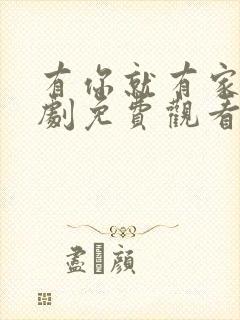 有你就有家
劇免費觀看
盡顔